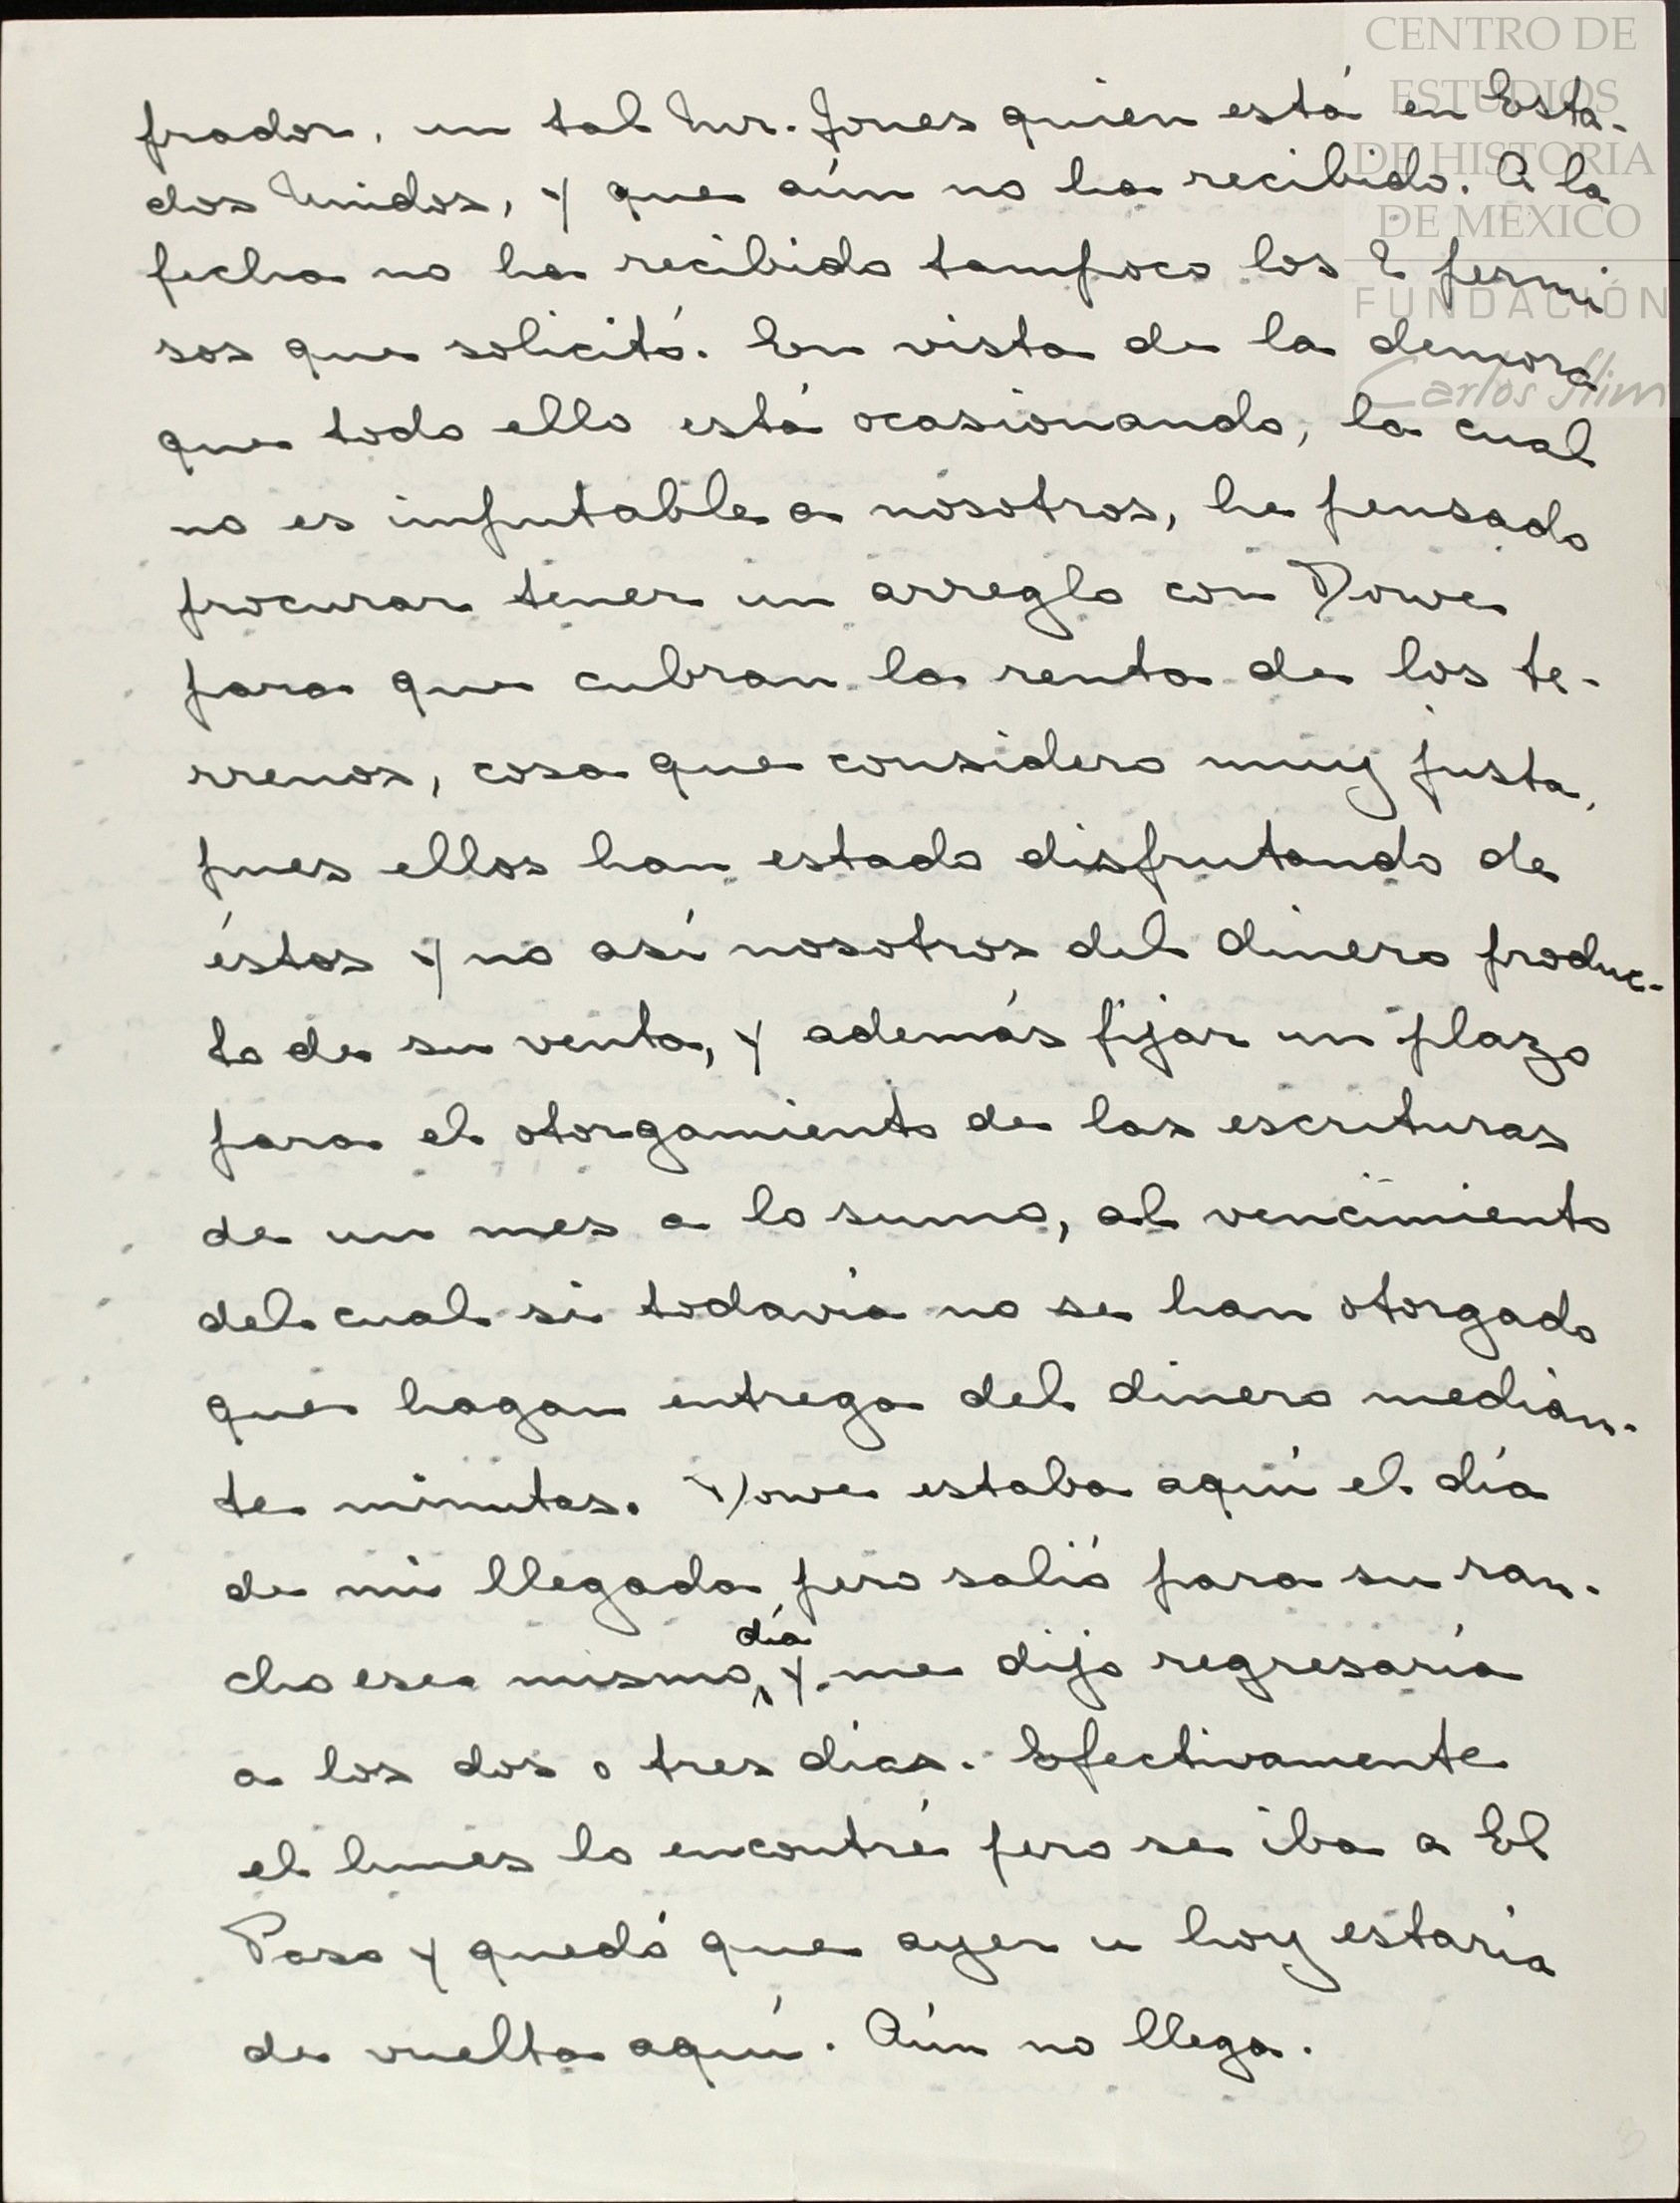 CENTRO DE
ESTUDIOS
DE HISTORIA
DE MEXICO
FUNDACIÓN
Carlos Slim
prador, un tal Mr. Jones quien está en Esta-
dos Unidos, y que aún no ha recibido. A la
fecha no ha recibido tampoco los 2 permi
sos que solicitó. En vista de la demora
que todo ello está ocasionando, la cual
no es imputable a nosotros, he pensado
procurar tener un arreglo con Dowe
para que cubran la renta de los te-
rrenos, cosa que considero muy justa,
pues ellos han estado disfrutando de
éstos y no así nosotros del dinero produc-
to de su venta, y además fijar un plazo
para el otorgamiento de las escrituras
de un mes a lo sumo, al vencimiento
del cual si todavía no se han otorgado
que hagan entrega del dinero median-
te minutas. Dowe estaba aquí el día
de mi llegada pero salió para su ran-
cho ese mismo día, y me dijo regresaría
a los dos o tres días. Efectivamente
el lunes lo encontré pero se iba a El
Paso y quedó que ayer u hoy estaría
de vuelta aquí. Aún no llega.